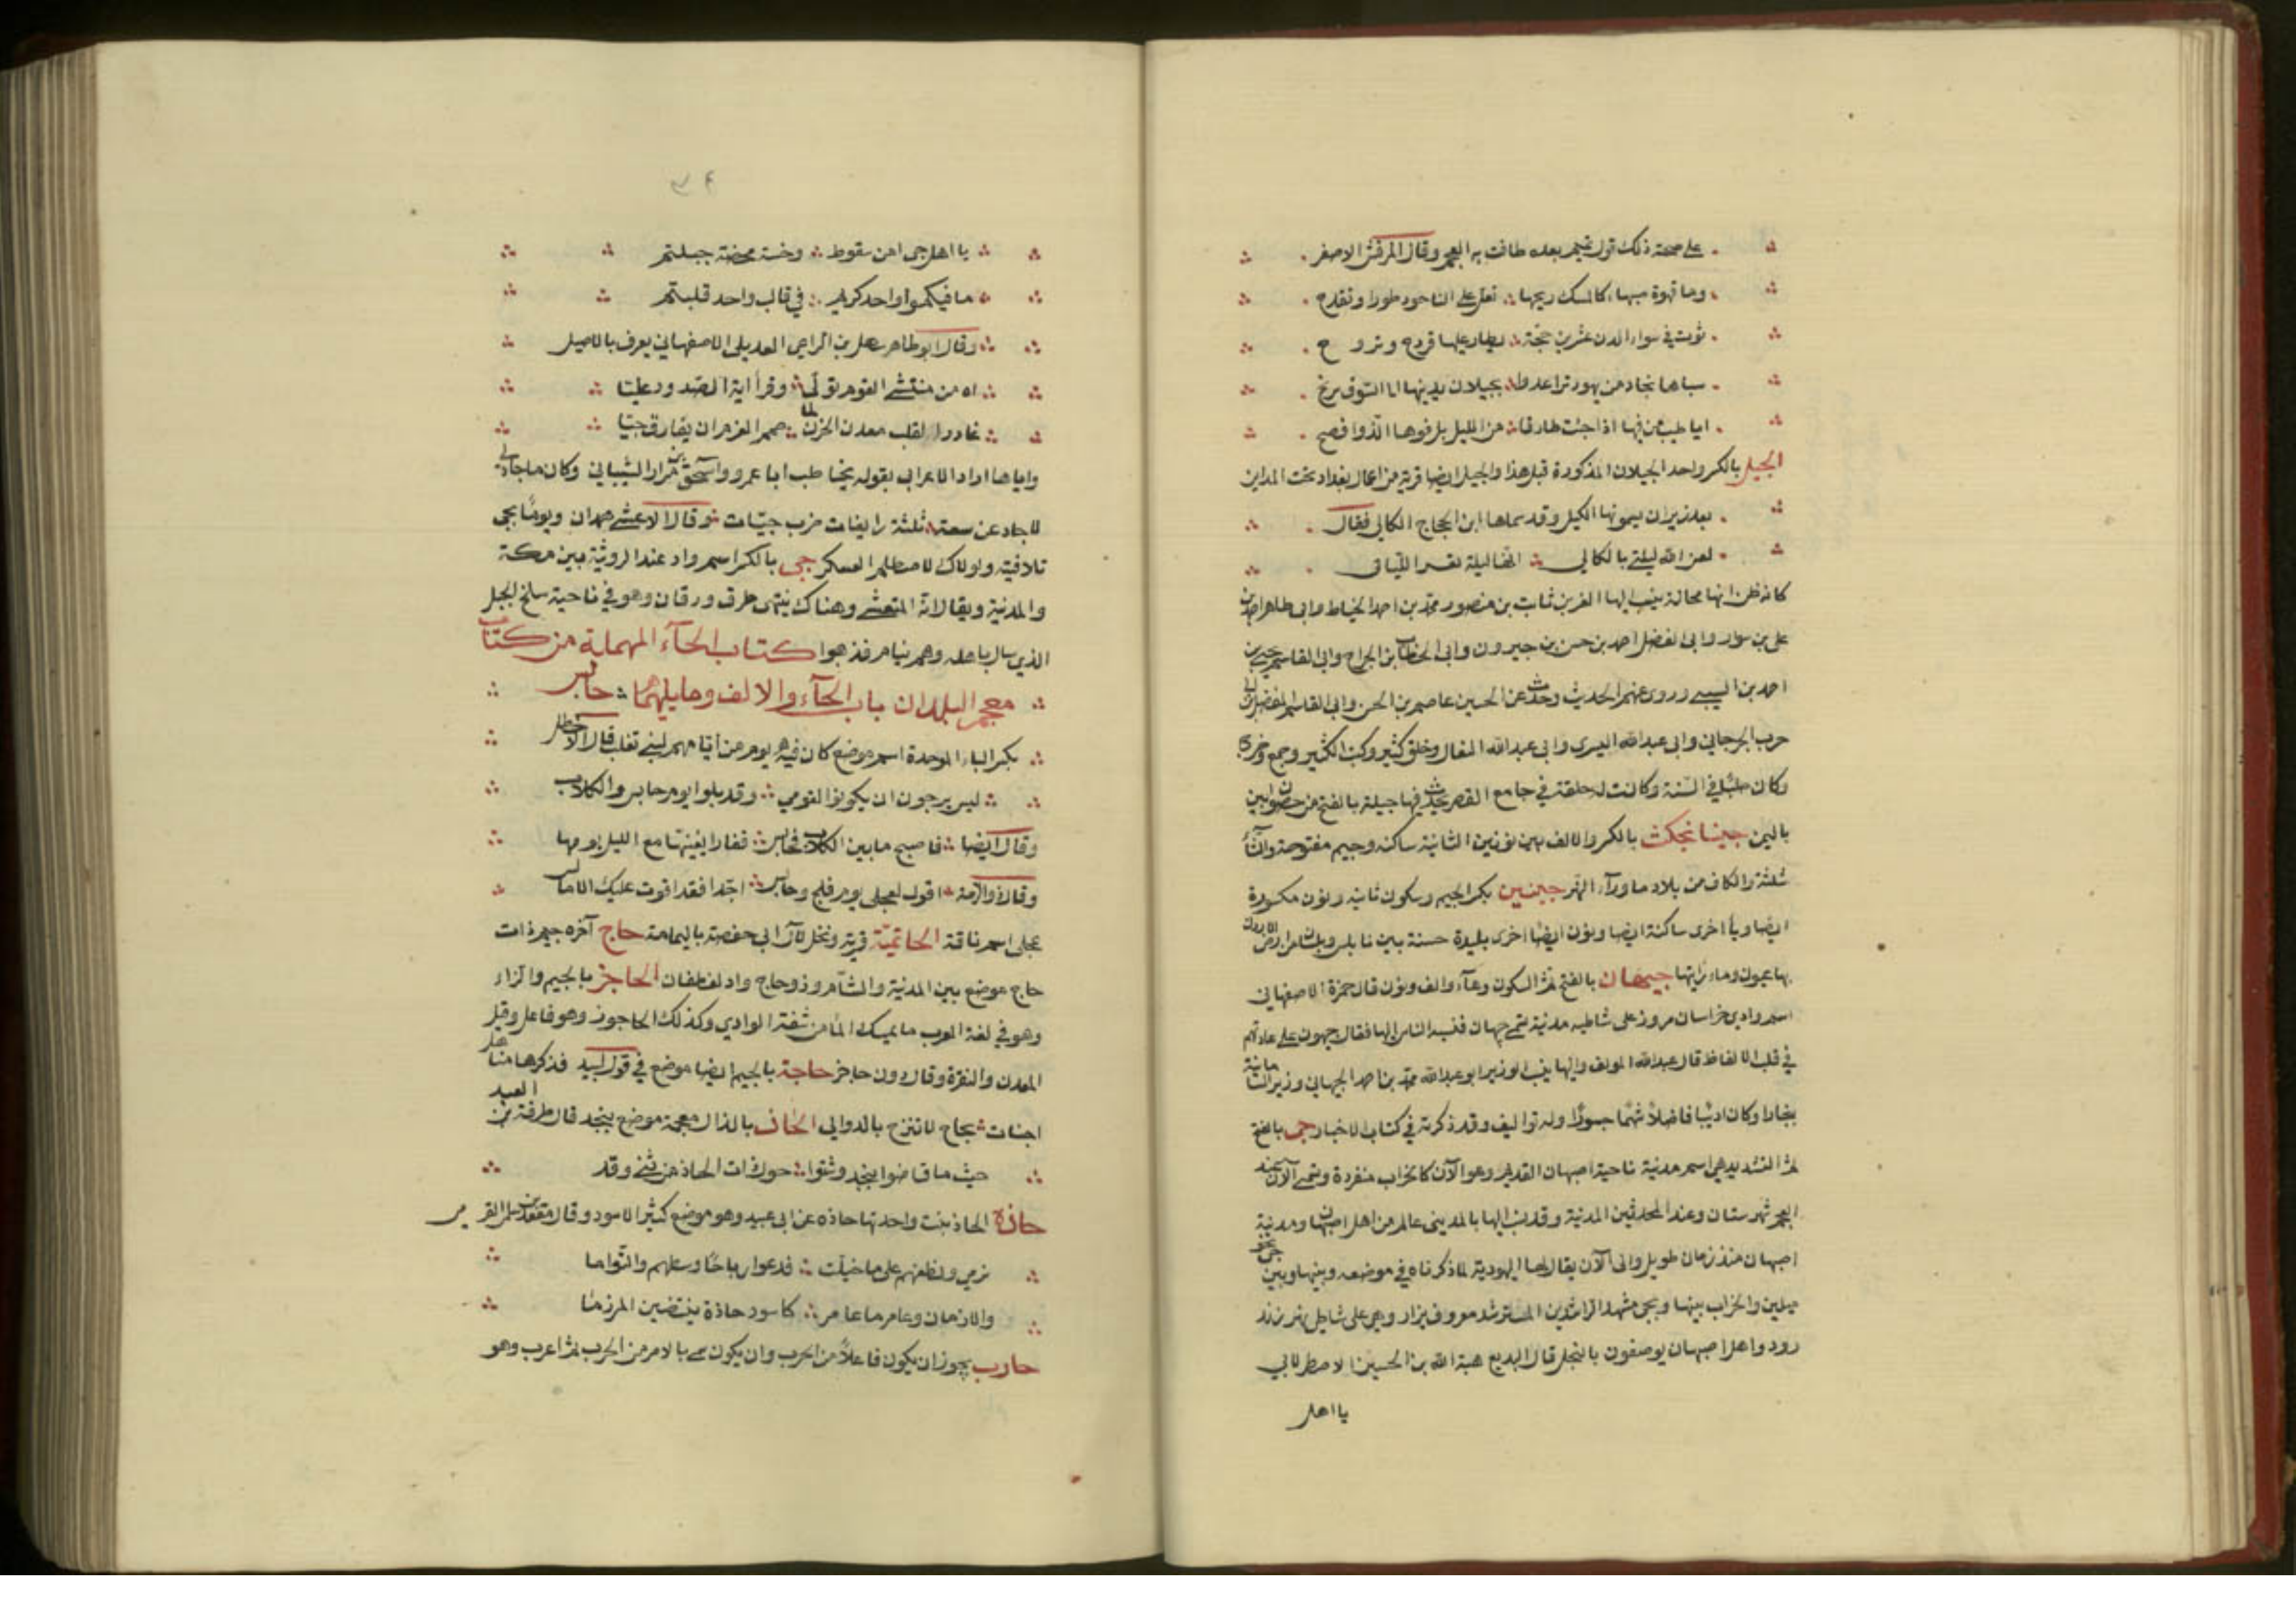 على صحة ذلك قول تميم بعده طافت به العجم وقال المرقش الاصغر
وما قهوة صهباء كالمسك ريحها تعل على الناجود طورا وتقدح
ثوت في سواء الدن عشرين حجة يطان عليها قرمد وتروح
سباها تجار من يهود تواعدوا بجيلان يدنيها الى السوق مربح
باطيب من فيها اذا جئت طارقا من الليل بل فوها الذ وانصح
الجيل بالكسر واحد الجيلان المذكورة قبل هذا والجيل ايضا قرية من اعمال بغداد تحت المداين
بعد زيران يسمونها الكيل وقد سماها ابن الحجاج الكالي فقال
لعن الله ليلتي بالكالي انها ليلة تعر الليالي
كانه ظن انها ممالة ينسب اليها ابو العز ثابت بن منصور محمد بن احمد الخياط وابى طاهر احمد بن
على بن سوار وابى الفضل احمد بن حسن بن خيرون وابى الخطاب بن الجراح وابى القاسم يحيى بن
احمد بن السيبي وروى عنهم الحديث وحدث عن الحسين عاصم بن الحسن وابى القاسم المفضل بن ابى
حرب الجرجاني وابى عبدالله البسري وابى عبدالله النعال وخلق كثير وكتب الكثير وجمع وخرج
وكان صلبا في السنة وكانت له حلقة في جامع القصر يحدث فيها جيلة بالفتح من حصون ابين
باليمن جينانجكث بالكسر والالف بين نونين الثانية ساكنه وجيم مفتوحة والثاء
مثلثة والكاف من بلاد ماوراء النهر جينين بكسر الجيم وسكون ثانيه ونون مكسورة
ايضا وياء اخرى ساكنة ايضا ونون ايضا اخرى بليدة حسنة بين نابلس وبيسان من ارض الاردن
بها عيون وماء رايتها جيهان بالفتح ثم السكون وهاء والف ونون قال حمزة الاصفهاني
اسم وادي خراسان مروز على شاطيه مدينة تسمى جيهان فنسبه الناس اليها فقال جيهون على عادتهم
في قلب الالفاظ قال عبدالله المولف واليها ينسب الوزير ابو عبدالله محمد بن احمد الجيهاني وزير السامانية
ببخارا وكان اديبا فاضلا شهما جسورا وله تواليف وقد ذكرته في كتاب الاخبار جي بالفتح
ثم التشديد هي اسم مدينة ناحية اصبهان القديم وهو الآن كالخراب منفردة وتسمى الآن عند
العجم شهرستان وعند المحدثين المدينة وقد نسب اليها بالمديني عالم من اهل اصبهان ومدينة
اصبهان منذ زمان طويل والى الآن يقال لها اليهودية لما ذكرناه في موضعه وبينها وبين جي نحو
ميلين والخراب بينها وبجي مشهد الراشد بن المسترشد معروف يزار وهي على شاطي نهر زند
رود واهل اصبهان يوصفون بالبخل قال البديع هبة الله بن الحسين الاصطرلابي
يا اهل
٩٧
يا اهل جي امن سقوط وخسة محضة جبلتم
ما فيكموا واحد كريم في قالب واحد قلبتم
وقال ابوطاهر سهل بن الراعي العديلي الاصفهاني يعرف بالاصيل
اه من منتشى القوم تولى وقرأ اية الصدود عليا
غادر القلب معدن الحزن لما صمم العزم ان يفارق جيا
واياها اراد الاعرابي بقوله يخاطب ابا عمرو واسحق بن مرار الشيباني وكان ماجاد لي
لاجاد عن سعة ثلثة زايفات ضرب جيات وقال الاعشى همدان ويوما بجي
تلافيته ولولاك لاصطلم العسكر جي بالكسر اسم واد عند الرويثة بين مكة
والمدينة ويقال انه المتعشى وهناك ينتهى طرف ورقان وهو في ناحية سلخ الجبل
الذي سال باهله وهم نيام فذهبوا كتاب الحآء المهملة من كتاب
معجم البلدان باب الحآء والالف وما يليهما حابس
بكسر الباء الموحدة اسم موضع كان فيه يوم من ايامهم لبني تغلب قال الاخطل
ليس يرجون ان يكونوا القومي وقد بلوا يوم حابس والكلاب
وقال ايضا فاصبح ما بين الكلاب فحابس قفارا يغنيها مع الليل بومها
وقال ذو الرمة اقول لعجلى يوم فلج وحابس اجدا فقد اقوت عليك الامالس
عجلى اسم ناقته الحاتمية قرية ونخل لآل ابى حفصة باليمامة حاج آخره جيم ذات
حاج موضع بين المدينة والشام وذو حاج واد لغطفان الحاجز بالجيم والزاء
وهو في لغة العرب ما يمسك الماء من شفة الوادي وكذلك الحاجوز وهو فاعل وقيل
المعدن والنقرة وقال دون حاجز حاجة بالجيم ايضا موضع في قول لبيد فذكرها مناهل
اجنات بحاج لاتنزح بالدوالي الحاذ بالذال معجمة موضع بنجد قال طرفة بن العبد
حيث ما قاضوا بنجد وشتوا حول ذات الحاذ من ثنى وقد
حاذة الحاذ نبت واحدتها حاذه عن ابى عبيد وهو موضع كثير الاسود وقال
نرمي ونطعنهم على ما خيلت ندعوا رباحا وسطهم والتواما
والازمان وعامر ما عامر كاسود حاذة يبتغين المرزما
حارب يجوز ان يكون فاعلا من الحرب وان يكون سمى بالامر من الحرب ثم اعرب وهو